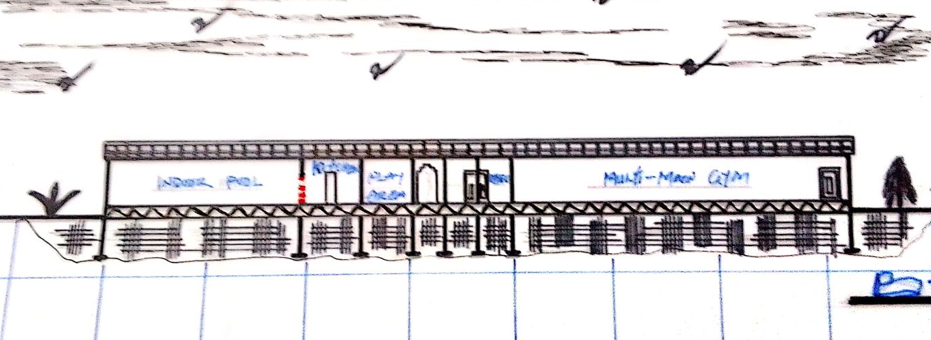 INDOOR POOL
KITCHEN
PLAY
AREA
MULTI-MAIN GYM